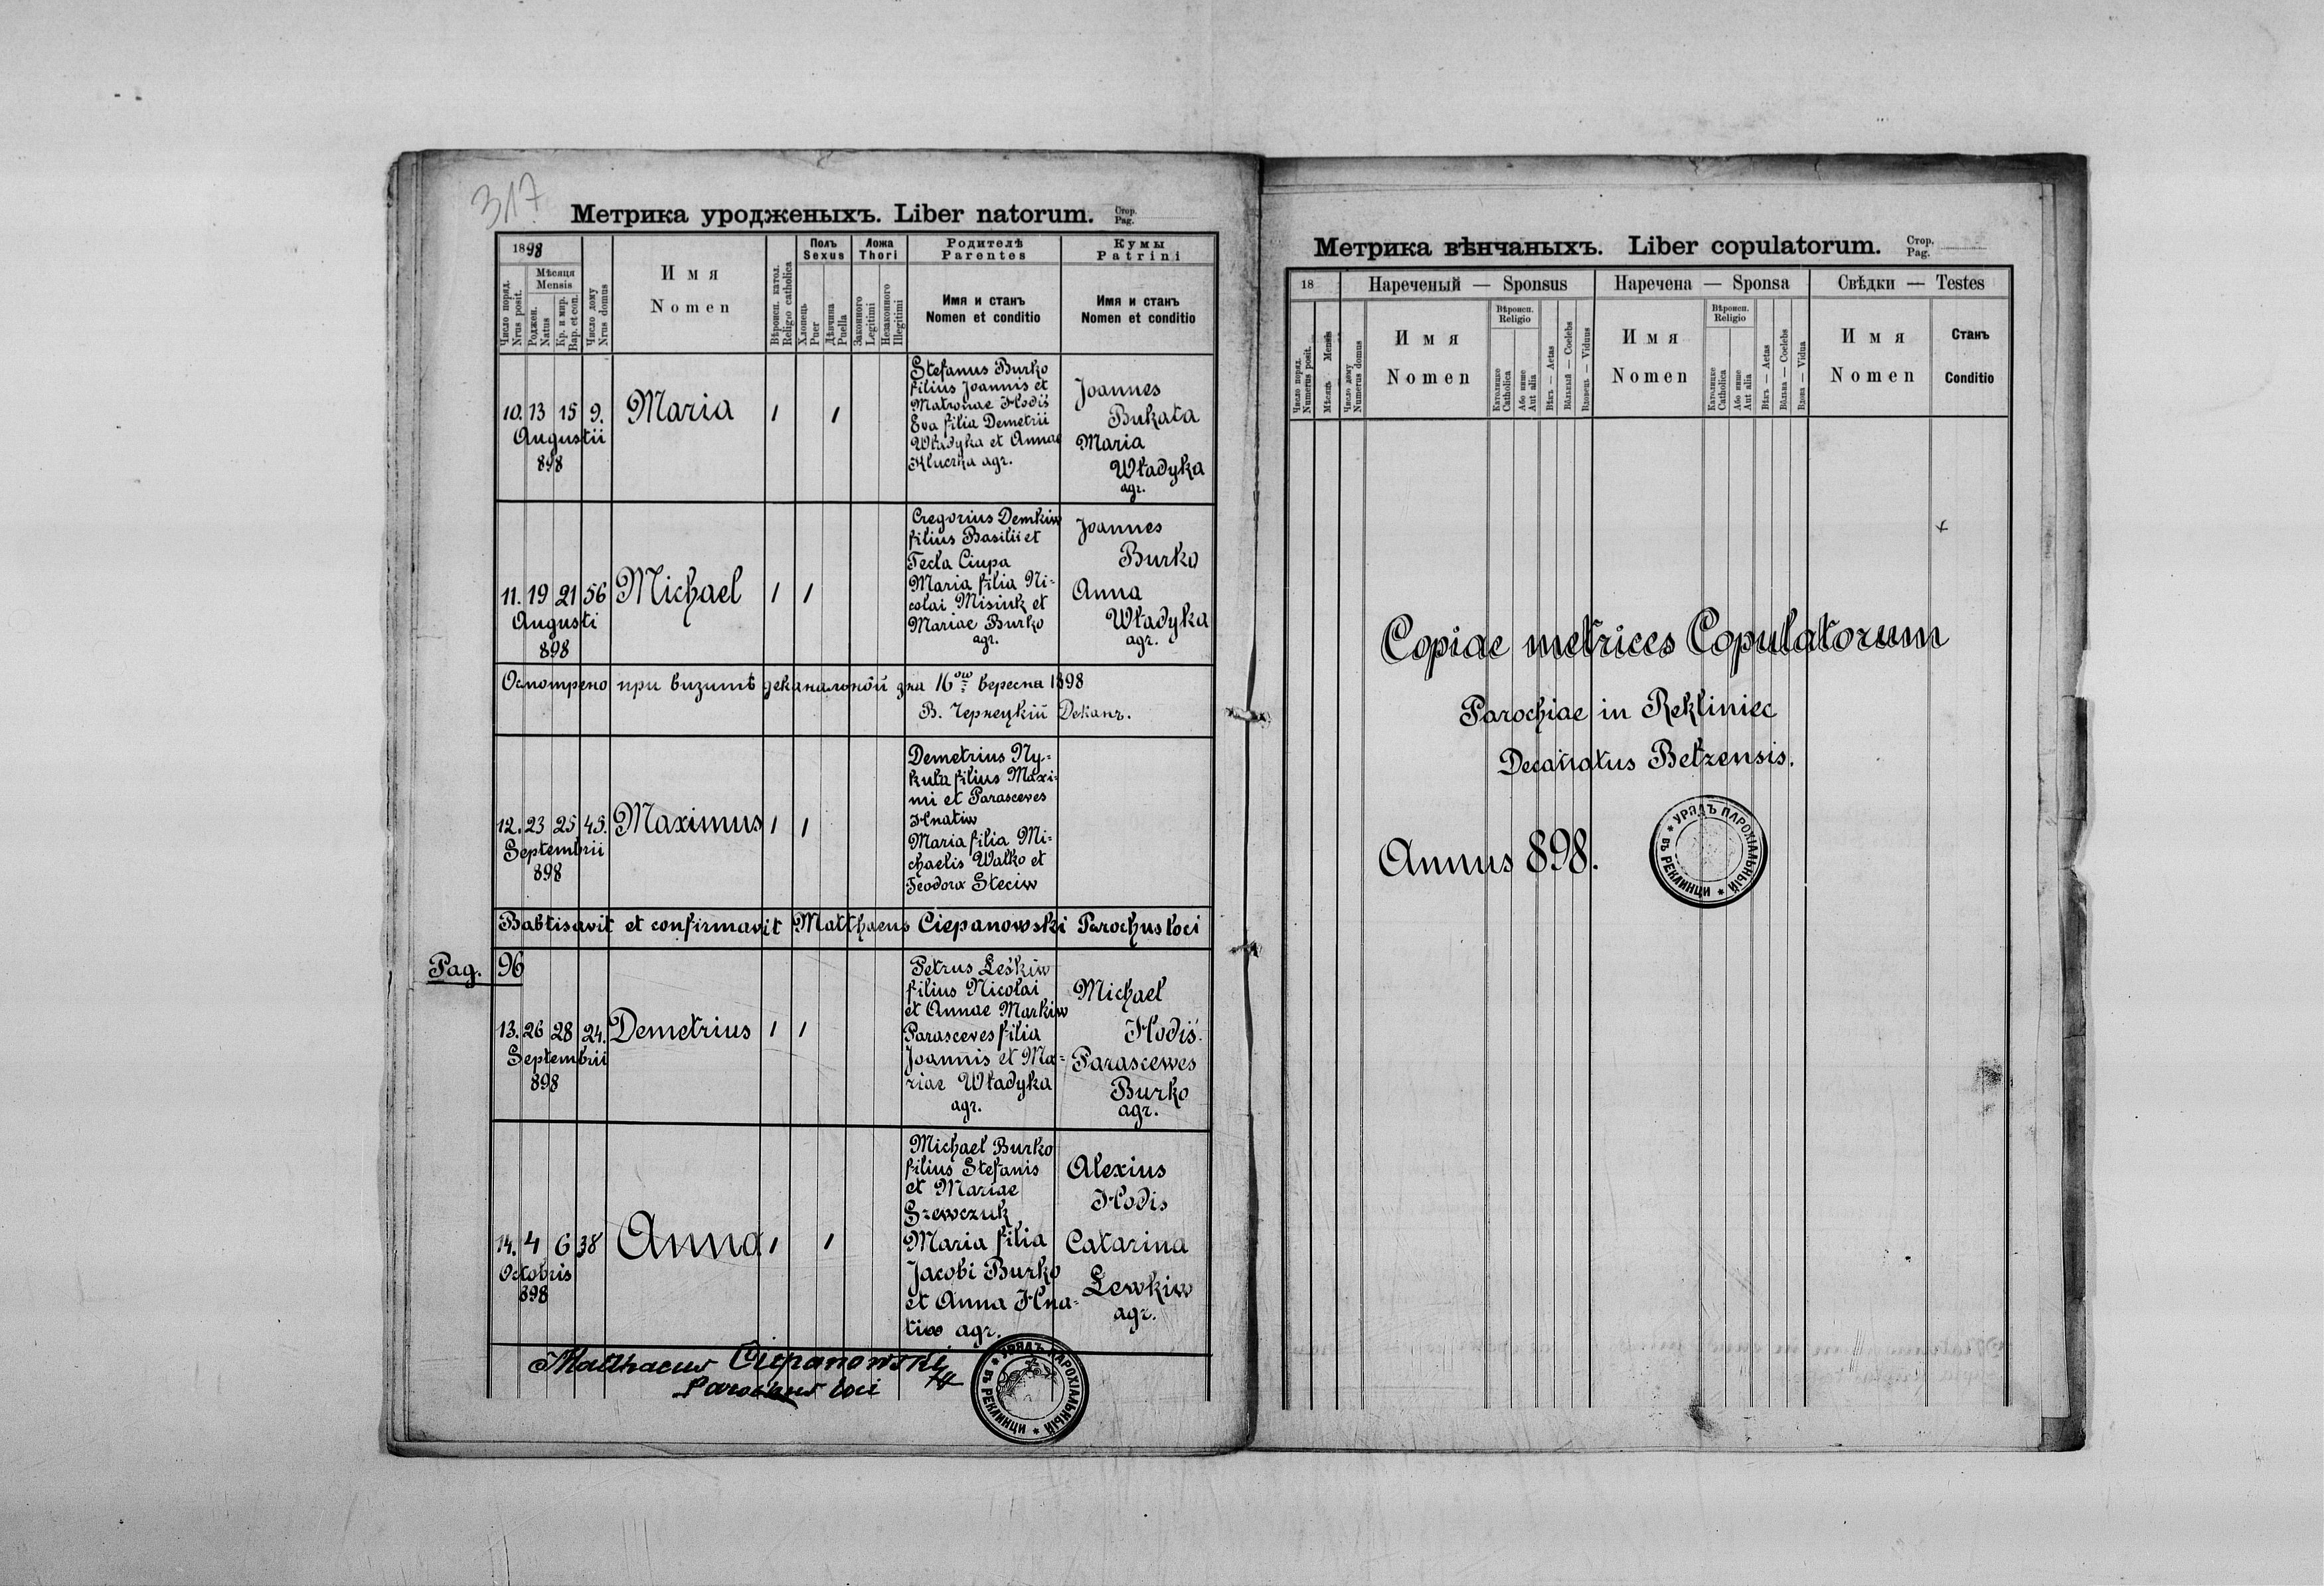 317
Метрика уродженыхъ. Liber natorum. Стор. Pag.
1898
Число поряд. Nrus posit.
Мѣсяця Mensis
Роджен. Natus
Кр. и мир. Bap. et con.
Число дому Nrus domus
Имя
Nomen
Вѣроисп. катол. Religio catholica
Полъ Sexus
Хлопець Puer
Дѣвчина Puella
Ложа Thori
Законного Legitimi
Незаконного Illegitimi
Родителѣ
Parentes
Имя и станъ
Nomen et conditio
Кумы
Patrini
Имя и станъ
Nomen et conditio
10. 13 15 9. Maria 1 1
Augustii
898
Stefanus Burko
filius Joannis et
Matronae Hodiś
Eva filia Demetrii
Władyka et Annae
Kluczka agr.
Joannes
Bukata
Maria
Władyka
agr.
11. 19 21 56 Michael 1 1
Augusti
898
Gregorius Demkiw
filius Basilii et
Tecla Ciupa
Maria filia Ni=
colai Misiuk et
Mariae Burko
agr.
Joannes
Burko
Anna
Władyka
agr.
Осмотрено при визитѣ деканальной дня 16ого вересня 1898
В. Чернецкій Деканъ.
12. 23 25 45. Maximus 1 1
Septembrii
898
Demetrius Ny=
kuła filius Maxi=
mi et Parasceves
Hnatiw
Maria filia Mi=
chaelis Walko et
Teodora Steciw
Babtisavit et confirmavit Matthaeus Ciepanowski Parochus loci
Pag. 96
13. 26 28 24. Demetrius 1 1
Septembrii
898
Petrus Leśkiw
filius Nicolai
et Annae Markiw
Parasceves filia
Joannis et Ma=
riae Władyka
agr.
Michael
Hodiś.
Parascewes
Burko
agr.
14. 4 6 38 Anna 1 1
Octobris
898
Michael Burko
filius Stefanis
et Mariae
Szewczuk
Maria filia
Jacobi Burko
et Anna Hna=
tiw agr.
Alexius
Hodis
Catarina
Lewkiw
agr.
Matthaeus Ciepanowski
Parochus loci
УРЯДЪ ПАРОХІАЛЬНЫЙ * въ РЕКЛИНЦИ *
Метрика вѣнчаныхъ. Liber copulatorum. Стор. Pag.
18
Число поряд. Numerus posit.
Мѣсяць Mensis
Число дому Numerus domus
Нареченый — Sponsus
Имя
Nomen
Вѣроисп. Religio
Католицке Catholica
Або инше Aut alia
Вѣкъ — Aetas
Вôльный — Coelebs
Вдовець — Viduus
Наречена — Sponsa
Имя
Nomen
Вѣроисп. Religio
Католицке Catholica
Або инше Aut alia
Вѣкъ — Aetas
Вôльна — Coelebs
Вдова — Vidua
Свѣдки — Testes
Имя
Nomen
Станъ
Conditio
Copiae metrices Copulatorum
Parochiae in Rekliniec
Decanatus Bełzensis.
Annus 898.
УРЯДЪ ПАРОХІАЛЬНЫЙ * въ РЕКЛИНЦИ *